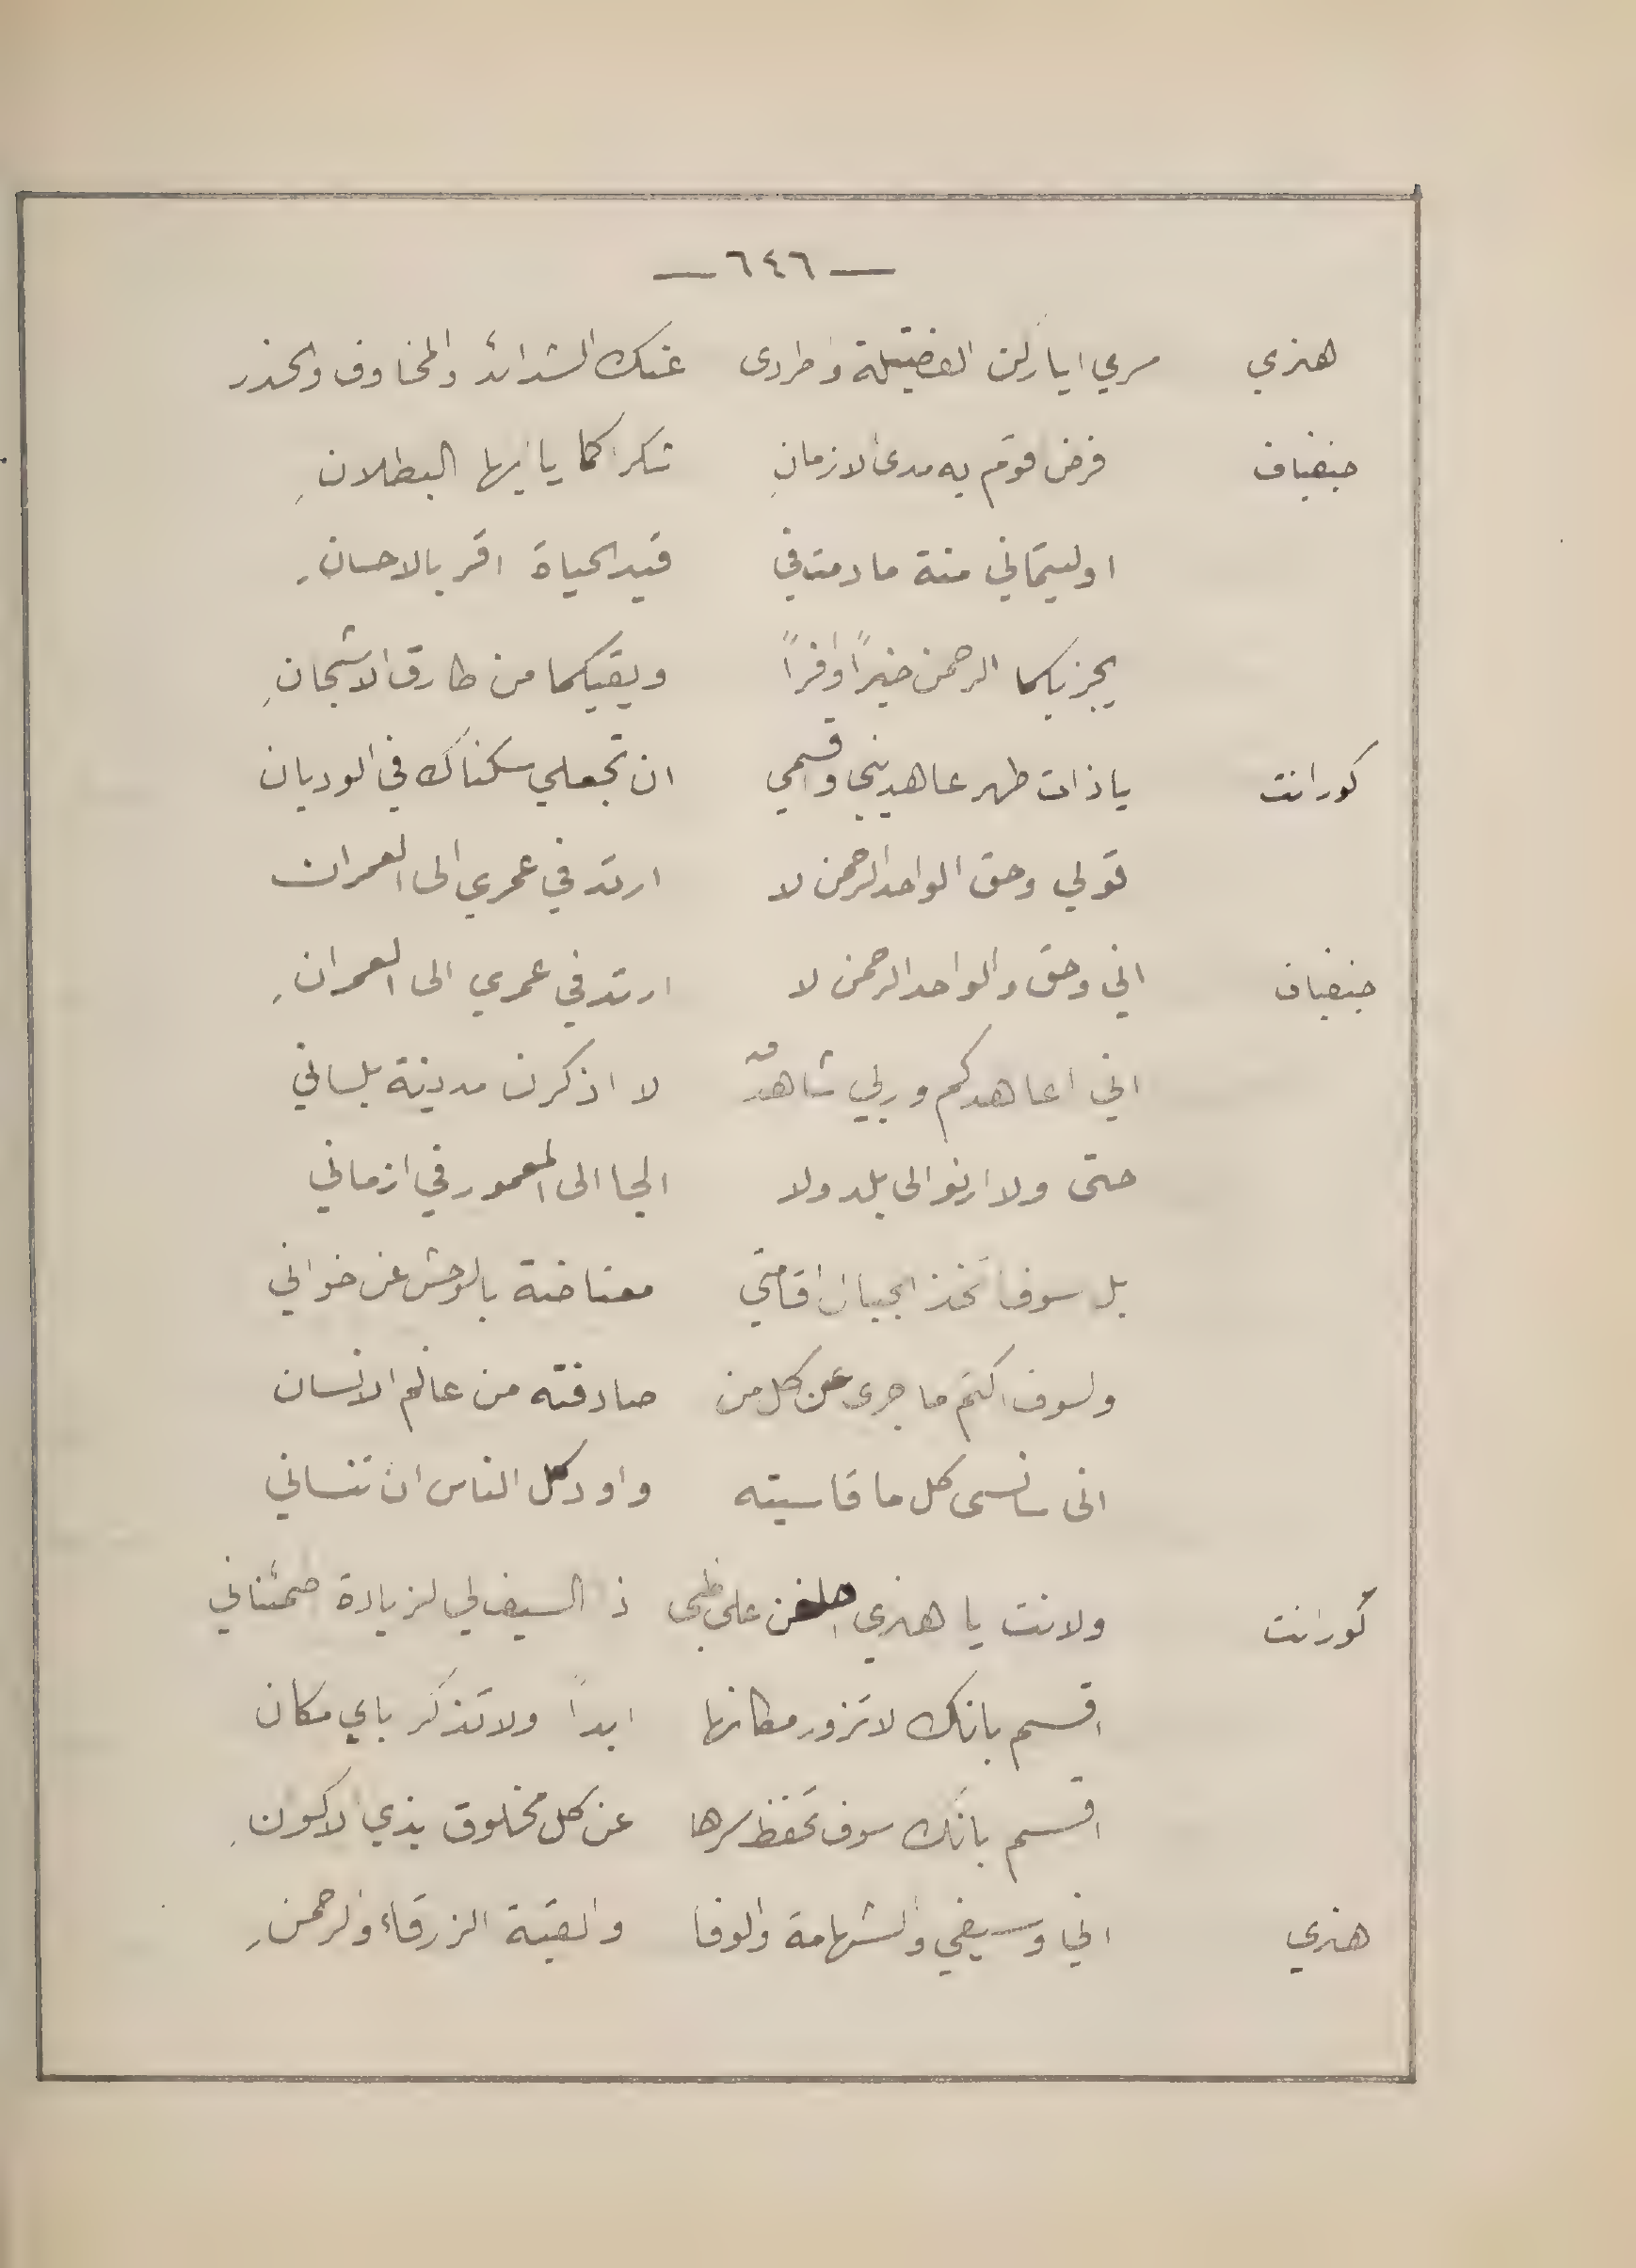 — ٦٤٦ —
هنري سري ايا ركن الفضيلة واطردى عنك الشدائد والمخاوف والحذر
جنفياف فرض اقوم به مدى الازمانِ شكرا كما يا ايها البطلانِ
اوليتماني منة ما دمت في قيد الحياة اقر بالاحسانِ
يجزيكما الرحمن خيراً وافراً ويقيكما من طارق الاشجانِ
كورانت يا ذات طهر عاهديني واقسمي ان تجعلي سكناك في الوديان
قولي وحق الواحد الرحمن لا ارتد في عمري الى العمران
جنفياف اني وحق والواحد الرحمن لا ارتد في عمري الى العمرانِ
اني اعاهدكم وربي شاهدٌ لا اذكرن مدينة بلساني
حتى ولا ارنو الى بلد ولا الجا الى المعمور في ازماني
بل سوف اتخذ الجبال اقامتي معتاضة بالوحش عن خواني
ولسوف اكتم ما جرى عن كل من صادفته من عالم الانسان
انى سانسى كل ما قاسيته واود كل الناس ان تنساني
كورانت ولانت يا هنري احلفن على ظبى ذا السيف لي لزيادة طمئناني
اقسم بانك لا تزور مكانها ابداً ولا تذكر باي مكان
اقسم بانك سوف تحفظ سرها عن كل مخلوق بذي الاكوانِ
هنري اني وسيفي والشهامة والوفا والقبة الزرقاء والرحمنِ